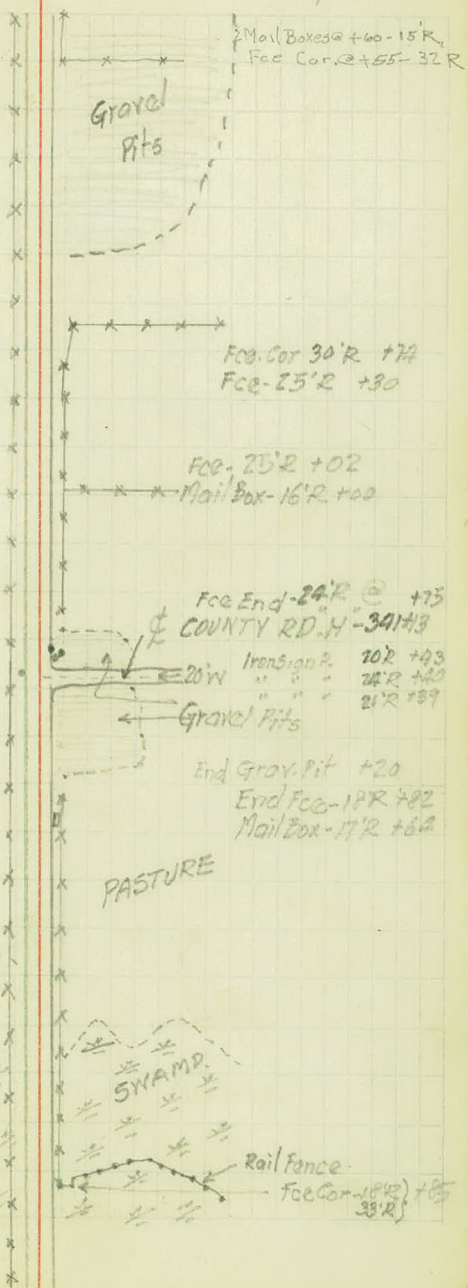 2 Mail Boxes @ +60-15'R,
Fce Cor. @ +55-32 R
Gravel
Pits
Fce. Cor 30'R +74
Fce-25'R +30
Fce-25'R +02
Mail Box-16'R +00
Fce End-24'R @ +75
℄ COUNTY RD "H"-341+43
Iron Sign P. 20'R +43
20'W
" " " 24'R +40
" " " 21'R +39
Gravel Pits
End Grav. Pit +20
End Fce-18'R +82
Mail Box-17'R +64
PASTURE
SWAMP.
Rail Fence
Fce Cor-18'R} +85
33'R}